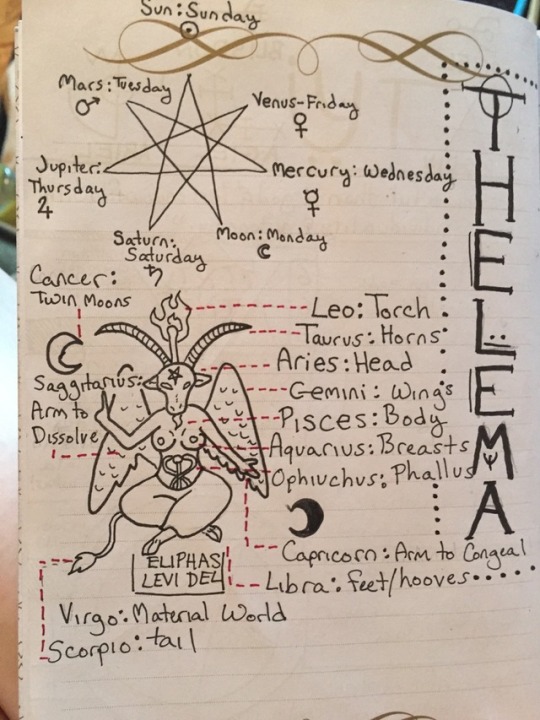 Sun: Sunday
☉
Mars: Tuesday
♂
Venus-Friday
♀
Jupiter:
Thursday
♃
Mercury: Wednesday
☿
Saturn:
Saturday
♄
Moon: Monday
☾
THELEMA
Cancer:
Twin Moons
Leo: Torch
Taurus: Horns
Aries: Head
Saggitarius:
Arm to
Dissolve
Gemini: Wings
Pisces: Body
Aquarius: Breasts
Ophiuchus: Phallus
Capricorn: Arm to Congeal
ELIPHAS
LEVI DEL
Libra: feet/hooves
Virgo: Material World
Scorpio: tail